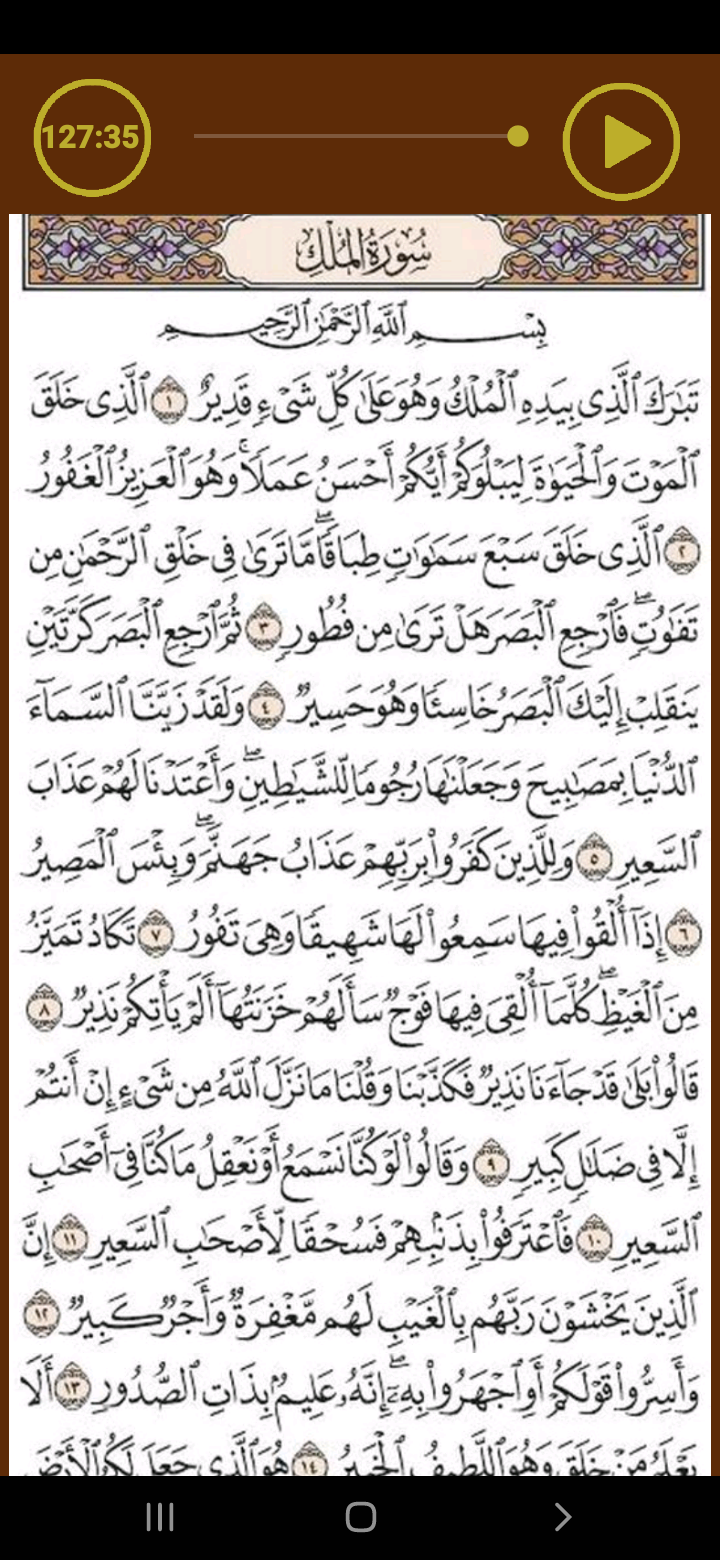 127:35
سُورَةُ الْمُلْكِ
بِسْمِ اللَّهِ الرَّحْمَٰنِ الرَّحِيمِ
تَبَٰرَكَ ٱلَّذِى بِيَدِهِ ٱلْمُلْكُ وَهُوَ عَلَىٰ كُلِّ شَىْءٍ قَدِيرٌ ١ ٱلَّذِى خَلَقَ
ٱلْمَوْتَ وَٱلْحَيَوٰةَ لِيَبْلُوَكُمْ أَيُّكُمْ أَحْسَنُ عَمَلًا ۚ وَهُوَ ٱلْعَزِيزُ ٱلْغَفُورُ
٢ ٱلَّذِى خَلَقَ سَبْعَ سَمَٰوَٰتٍ طِبَاقًا ۖ مَّا تَرَىٰ فِى خَلْقِ ٱلرَّحْمَٰنِ مِن
تَفَٰوُتٍ ۖ فَٱرْجِعِ ٱلْبَصَرَ هَلْ تَرَىٰ مِن فُطُورٍ ٣ ثُمَّ ٱرْجِعِ ٱلْبَصَرَ كَرَّتَيْنِ
يَنقَلِبْ إِلَيْكَ ٱلْبَصَرُ خَاسِئًا وَهُوَ حَسِيرٌ ٤ وَلَقَدْ زَيَّنَّا ٱلسَّمَآءَ
ٱلدُّنْيَا بِمَصَٰبِيحَ وَجَعَلْنَٰهَا رُجُومًا لِّلشَّيَٰطِينِ ۖ وَأَعْتَدْنَا لَهُمْ عَذَابَ
ٱلسَّعِيرِ ٥ وَلِلَّذِينَ كَفَرُوا۟ بِرَبِّهِمْ عَذَابُ جَهَنَّمَ ۖ وَبِئْسَ ٱلْمَصِيرُ
٦ إِذَآ أُلْقُوا۟ فِيهَا سَمِعُوا۟ لَهَا شَهِيقًا وَهِىَ تَفُورُ ٧ تَكَادُ تَمَيَّزُ
مِنَ ٱلْغَيْظِ ۖ كُلَّمَآ أُلْقِىَ فِيهَا فَوْجٌ سَأَلَهُمْ خَزَنَتُهَآ أَلَمْ يَأْتِكُمْ نَذِيرٌ ٨
قَالُوا۟ بَلَىٰ قَدْ جَآءَنَا نَذِيرٌ فَكَذَّبْنَا وَقُلْنَا مَا نَزَّلَ ٱللَّهُ مِن شَىْءٍ إِنْ أَنتُمْ
إِلَّا فِى ضَلَٰلٍ كَبِيرٍ ٩ وَقَالُوا۟ لَوْ كُنَّا نَسْمَعُ أَوْ نَعْقِلُ مَا كُنَّا فِىٓ أَصْحَٰبِ
ٱلسَّعِيرِ ١٠ فَٱعْتَرَفُوا۟ بِذَنۢبِهِمْ فَسُحْقًا لِّأَصْحَٰبِ ٱلسَّعِيرِ ١١ إِنَّ
ٱلَّذِينَ يَخْشَوْنَ رَبَّهُم بِٱلْغَيْبِ لَهُم مَّغْفِرَةٌ وَأَجْرٌ كَبِيرٌ ١٢
وَأَسِرُّوا۟ قَوْلَكُمْ أَوِ ٱجْهَرُوا۟ بِهِۦٓ ۖ إِنَّهُۥ عَلِيمٌۢ بِذَاتِ ٱلصُّدُورِ ١٣ أَلَا
يَعْلَمُ مَنْ خَلَقَ وَهُوَ ٱللَّطِيفُ ٱلْخَبِيرُ ١٤ هُوَ ٱلَّذِى جَعَلَ لَكُمُ ٱلْأَرْضَ